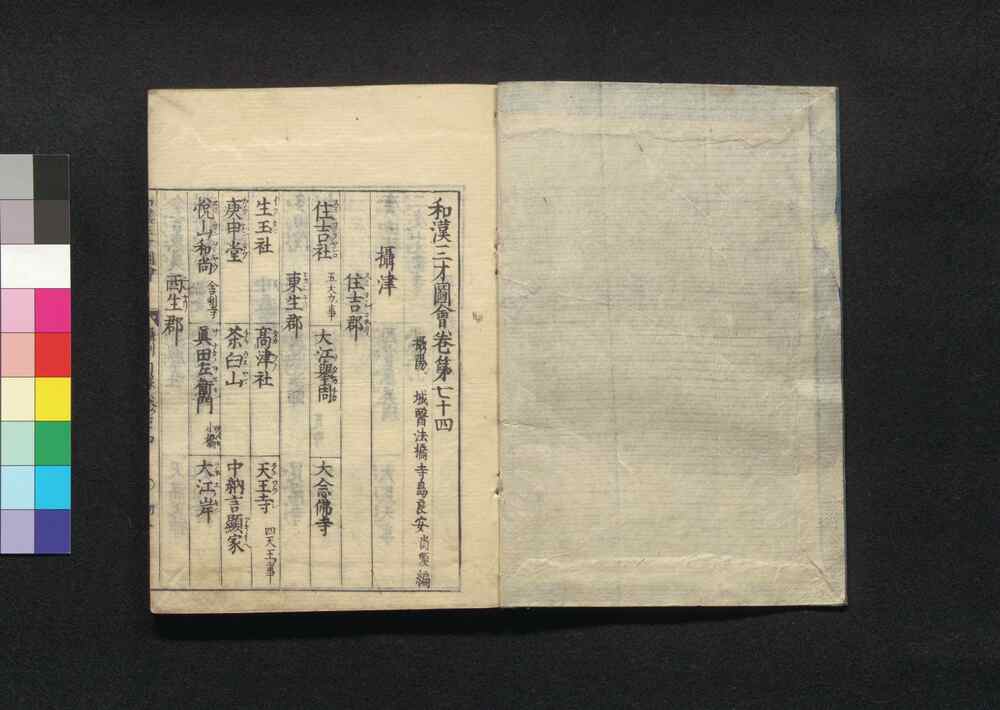 和漢三才圖會卷第七十四
攝陽 城醫法橋寺島良安尚順編
攝津
住吉郡
住吉社 五大力事 大江擧周 大念佛寺
東生郡
生玉社 髙津社 天王寺 四天王事
庚申堂 茶臼山 中納言顯家
悅山和尚 舎利寺 眞田左衞門 小橋 大江岸
西生郡